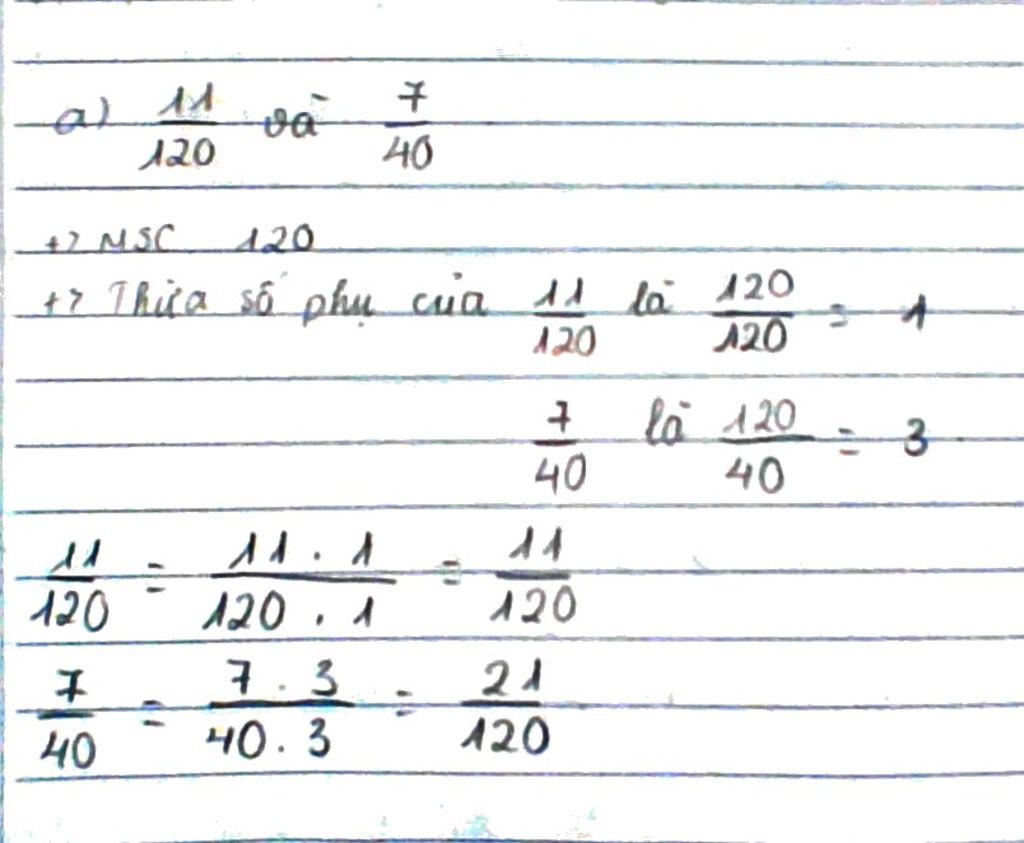 a) 11/120 và 7/40
+> MSC 120
+> Thừa số phụ của 11/120 là 120/120 = 1
7/40 là 120/40 = 3
11/120 = 11 . 1/120 . 1 = 11/120
7/40 = 7 . 3/40 . 3 = 21/120